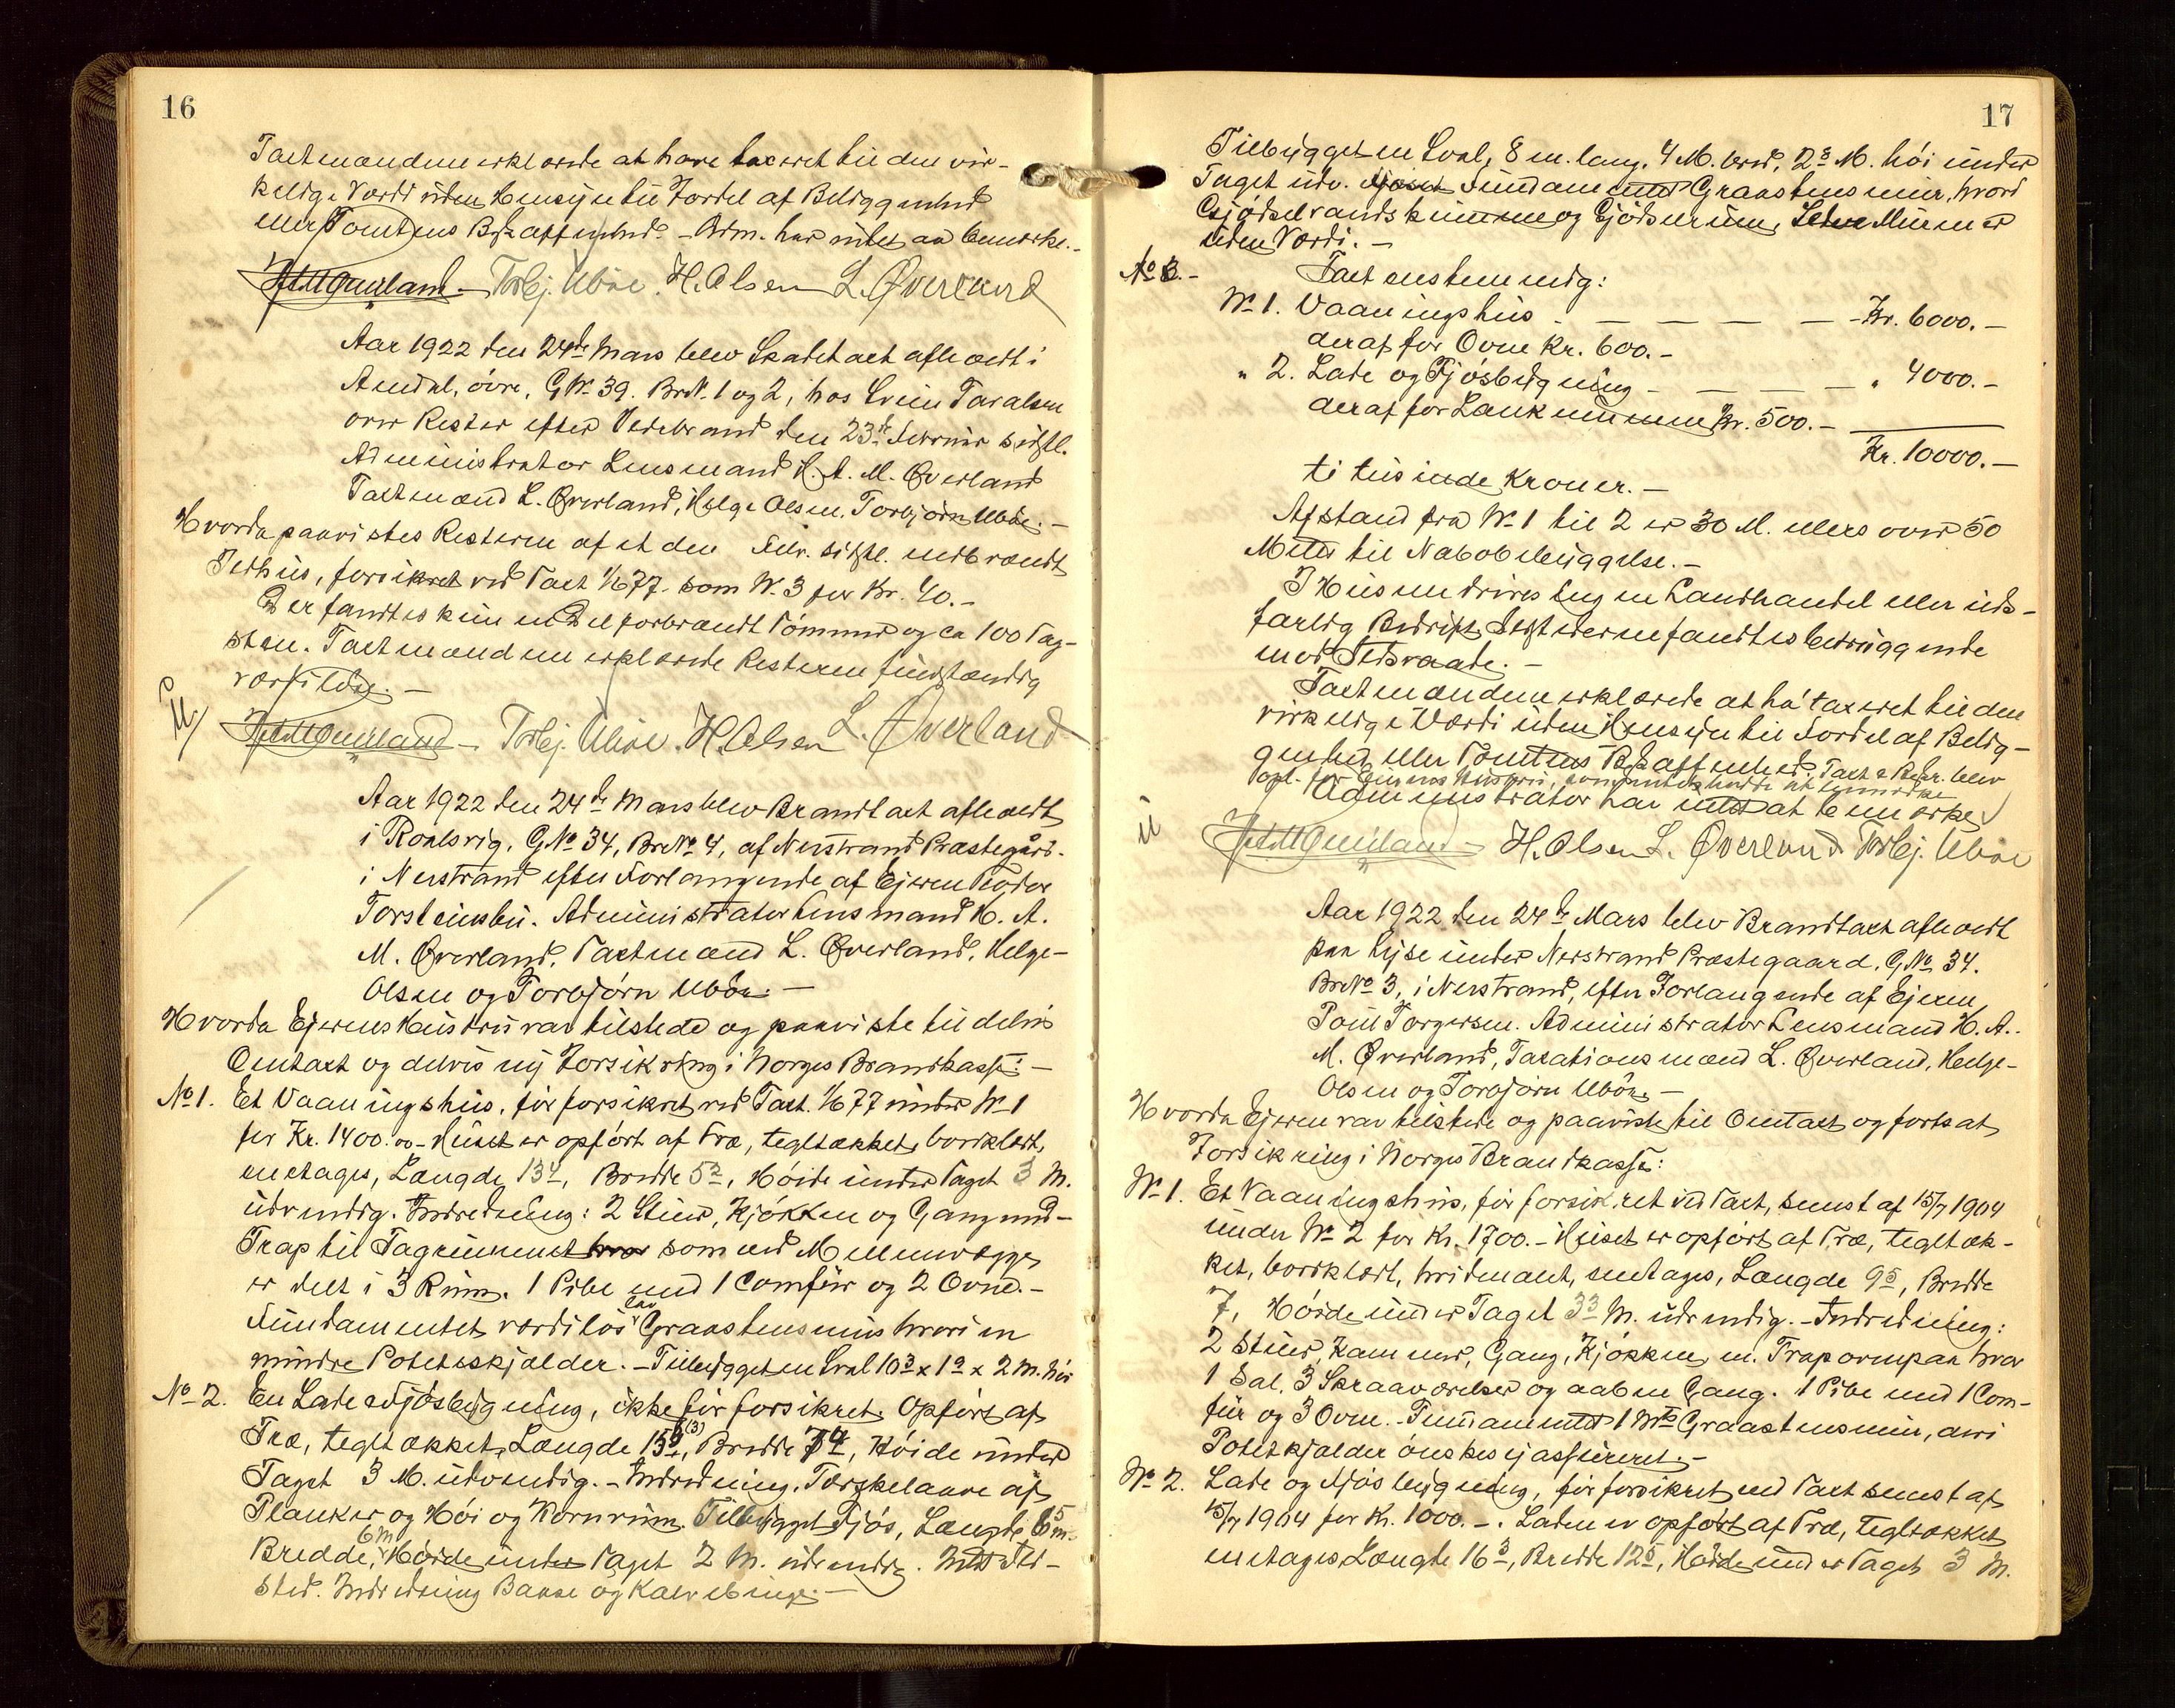 16
Taxtmændene erklærede at have taxeret til den vir-
kelige Værdi uden Hensyn til Fordel af Beliggenhed
eller Tomtens Beskaffenhed. - Adm. har intet at bemærke. -
Torbj. Uböe. H. Olsen L. Øverland
Aar 1922 den 24de Mars blev Skadetaxt afholdt i
Amdal, övre, G.No 39. Br.N. 1 og 2, hos Svein Taralsen
over Rester efter Ildebrand den 23de Februar sidstl.
Administrator Lensmand H. A. M. Øverland
Taxtmænd L. Øverland, Helge Olsen, Torbjörn Uböe. -
Hvorda paavistes Resterne af et den Febr. sidstl. nedbrændt
Ildhus, forsikret ved Taxt 1/6 77 som No 3 for Kr. 40. -
Der fandtes kun en Del forbrændt Tömmer og ca 100 Tag-
sten. Taxtmændene erklærede Resterne fuldstændig
værdilöse. -
Torbj. Uböe. H. Olsen L. Øverland
Aar 1922 den 24de Mars blev Brandtaxt afholdt
i Roalsvig, G.No 34, Br.No 4, af Nerstrand Præstegård.
i Nerstrand efter Forlangende af Ejeren Peder
Torsteinsbu. Administrator Lensmand H. A.
M. Øverland. Taxtmænd L. Øverland, Helge-
Olsen og Torbjörn Uböe. -
Hvorda Ejerens Hustru var tilstede og paaviste til delvis
Omtaxt og delvis ny Forsikring i Norges Brandkasse: -
No 1. Et Vaaningshus, för forsikret ved Taxt. 1/6 77 under No 1
for Kr. 1400.00 - Huset er opfört af Træ, tegltækket, bordklædt,
enetages, Længde 13⁴, Bredde 5², Höide under Taget 3 M.
udvendig. Indredning: 2 Stuer, Kjökken og Gang med
Trap til Tagrummet som ved Mellemvægge
er delt i 3 Rum. 1 Pibe med 1 Comfur og 2 Ovne. -
Fundamentet værdilös lav Graastensmur hvori en
mindre Potetskjælder. - Tilbygget en Sval 10³ x 1⁹ x 2 M. höi
No 2. En Lade & Fjösbygning, ikke för forsikret. Opfört af
Træ, tegltækket, Længde 15⁹, Bredde 7⁴, Höide under
Taget 3 M. udvendig. - Indredning, Tærskelaave af
Planker og Höi og Kornrum. Tilbygget Fjös, Længde 6⁵ m.
Bredde 6 m, Höide under Taget 2 M. udvendig. Intet Ild-
sted. Indredning Baase og Kalvebinge. -
17
Tilbygget en Sval, 8 m. lang, 4 M. bred, 2⁸ M. höi under
Taget udv. Fundamentet Graastensmur, hvori
Gjödselvandskumme og Gjödselrum, Muren er
uden Værdi. -
No 3. - Taxt enstemmig:
No 1. Vaaningshus - - - - - Kr. 6000. -
deraf for Ovne Kr. 600. -
" 2. Lade og Fjösbygning - - - - " 4000. -
deraf for Lankummen Kr. 500. -
Kr. 10000. -
ti tusinde Kroner. -
Afstand fra No 1 til 2 er 30 M. ellers over 50
Meter til Nabobebyggelse. -
I Husene drives ingen Landhandel eller ilds-
farlig Bedrift. Ildstederne fandtes betryggende
mod Ildsvaade. -
Taxtmændene erklærede at ha' taxeret til den
virkelige Værdi uden Hensyn til Fordel af Belig-
genhed eller Tomtens Beskaffenhed. Taxt & Beskr. blev
opl. for Eierens Hustru, som intet havde at bemærke
Administrator har intet at bemærke
H. Olsen L. Øverland Torbj. Uböe
Aar 1922 den 24de Mars blev Brandtaxt afholdt
paa Lyse under Nerstrand Præstegaard, G.No 34.
Br.No 3, i Nerstrand, efter Forlangende af Ejeren
Poul Torgersen. Administrator Lensmand H. A.
M. Øverland, Taxationsmænd L. Øverland, Helge-
Olsen og Torbjörn Uböe. -
Hvorda Ejeren var tilstede og paaviste til Omtaxt og fortsat
Forsikring i Norges Brandkasse:
No 1. Et Vaaningshus, för forsikret ved Taxt, senest af 15/7 1904
under No 2 for Kr. 1700. - Huset er opfört af Træ, tegltæk-
ket, bordklædt, hvidmalt, enetages, Længde 9⁵, Bredde
7, Höide under Taget 3³ M. udvendig. - Indredning:
2 Stuer, Kammer, Gang, Kjökken, m. Trap ovenpaa hvor
1 Sal, 3 Skraaværelser og aaben Gang. 1 Pibe med 1 Com-
fur og 3 Ovne. - Fundamentet 1 Mtr. Graastensmur, deri
Potetkjælder önskes ej assureret. -
No 2. Lade og Fjösbygning, för forsikret ved Taxt senest af
15/7 1904 for Kr. 1000. - . Laden er opfört af Træ, tegltækket
enetages, Længde 16³, Bredde 12⁵, Höide under Taget 3 M.